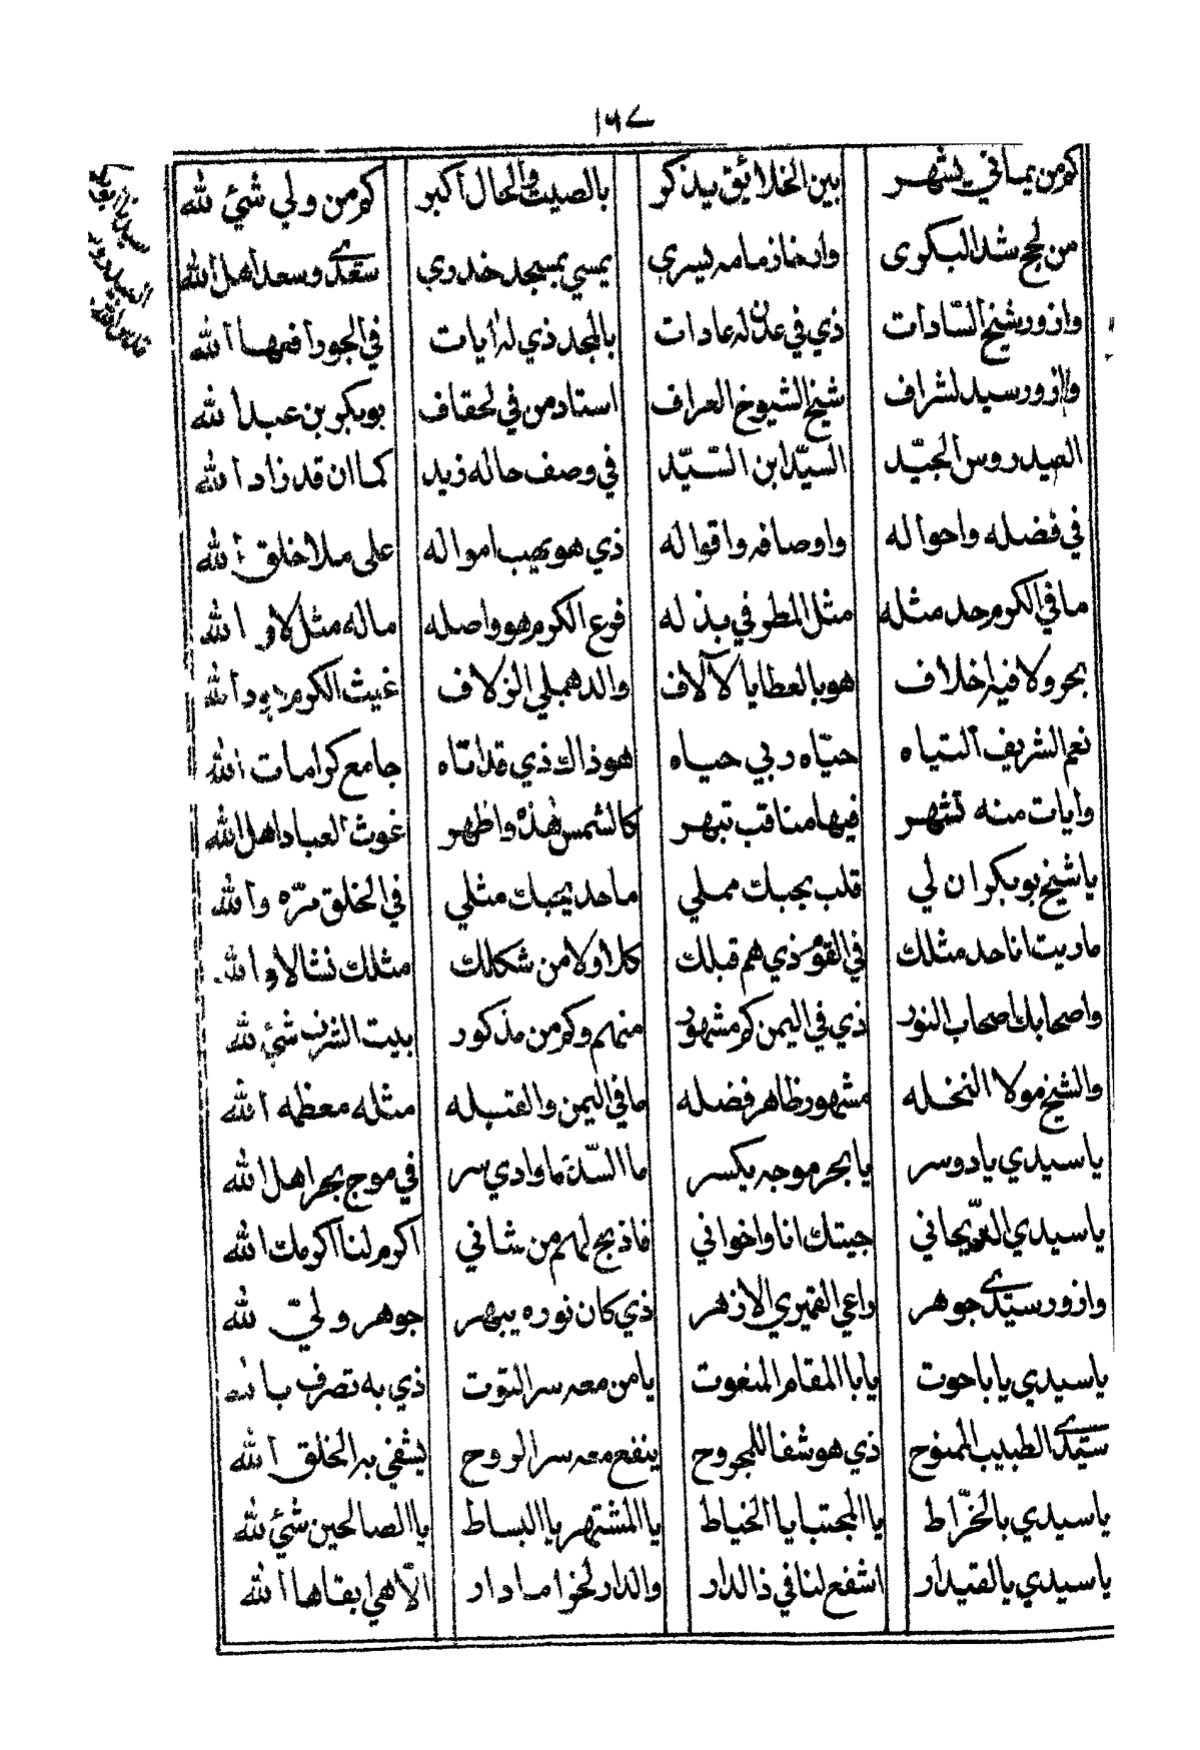 ١٦٧
كم من يماني يشهر بين الخلائق يذكر بالصيت والحال أكبر كم من ولي شيئ لله
من لج شد البكرى وانخاز مامه يسري يمسي بمسجد خدري سعدي وسعد اهل الله
وازور شيخ السّادات ذي في عدن له عادات بالمجد ذي له أيات في الجود افهها الله
وازور سيد لشراف شيخ الشيوخ العراف استاد من في لحقاف بوبكر بن عبد الله
العيدروس الجيّد السيّد ابن السّيّد في وصف حاله زيد كما ان قد زاد الله
في فضله واحواله واوصافه واقواله ذي هو يهب امواله على ملا خلق الله
ما في الكرم حد مثله مثل المطر في بذله فرع الكرم هو واصله ماله مثل لاو الله
بحر ولا فيه اخلاف هو بالعطايا لآلاف والدهملي الزلاف غيث الكرم جود الله
نعم الشريف التياه حيّاه ربي حياه هو ذاك ذي قد اتاه جامع كرامات الله
وايات منه تشهر فيها مناقب تبهر كالشمس هذه واظهر غوث العباد اهل الله
يا شيخ بوبكر ان لي قلب بحبك ممل‍ي ما حد يحبك مثلي في الخلق مرّه والله
ماريت انا حد مثلك في القوم ذي هم قبلك كلا ولا من شكلك مثلك نشا لا والله
واصحابك اصحاب النور ذي في اليمن كم مشهور منهم وكم من مذكور بيت الشرف شيئ لله
والشيخ مولا النخله مشهور ظاهر فضله ما في اليمن والقبله مثله معظمه الله
يا سيدي يا دوسر يا بحر موجه يكسر ما السدّة ما وادي سر في موج بحر اهل الله
يا سيدي الريحاني جيتك انا واخواني فاذبح لهم من شاني اكرم لنا اكرمك الله
وازور سيّدي جوهر راعي القميري الازهر ذي كان نوره يبهر جوهر وليّ لله
يا سيدي يا باحوت يا با المقام المنعوت يا من معه سر التوت ذي به تصرف بالله
سيّدي الطبيب الممنوح ذي هو شفا للمجروح ينفع معه سر الروح يشفي به الخلق الله
يا سيدي بالخرّاط يا المجتبا يا الخياط يا المشتهر يا البساط يا الصالحين شيئ لله
يا سيدي بالقيدار اشفع لنا في ذا الدار والدار لخرا مادار الاّهي ابقاها الله